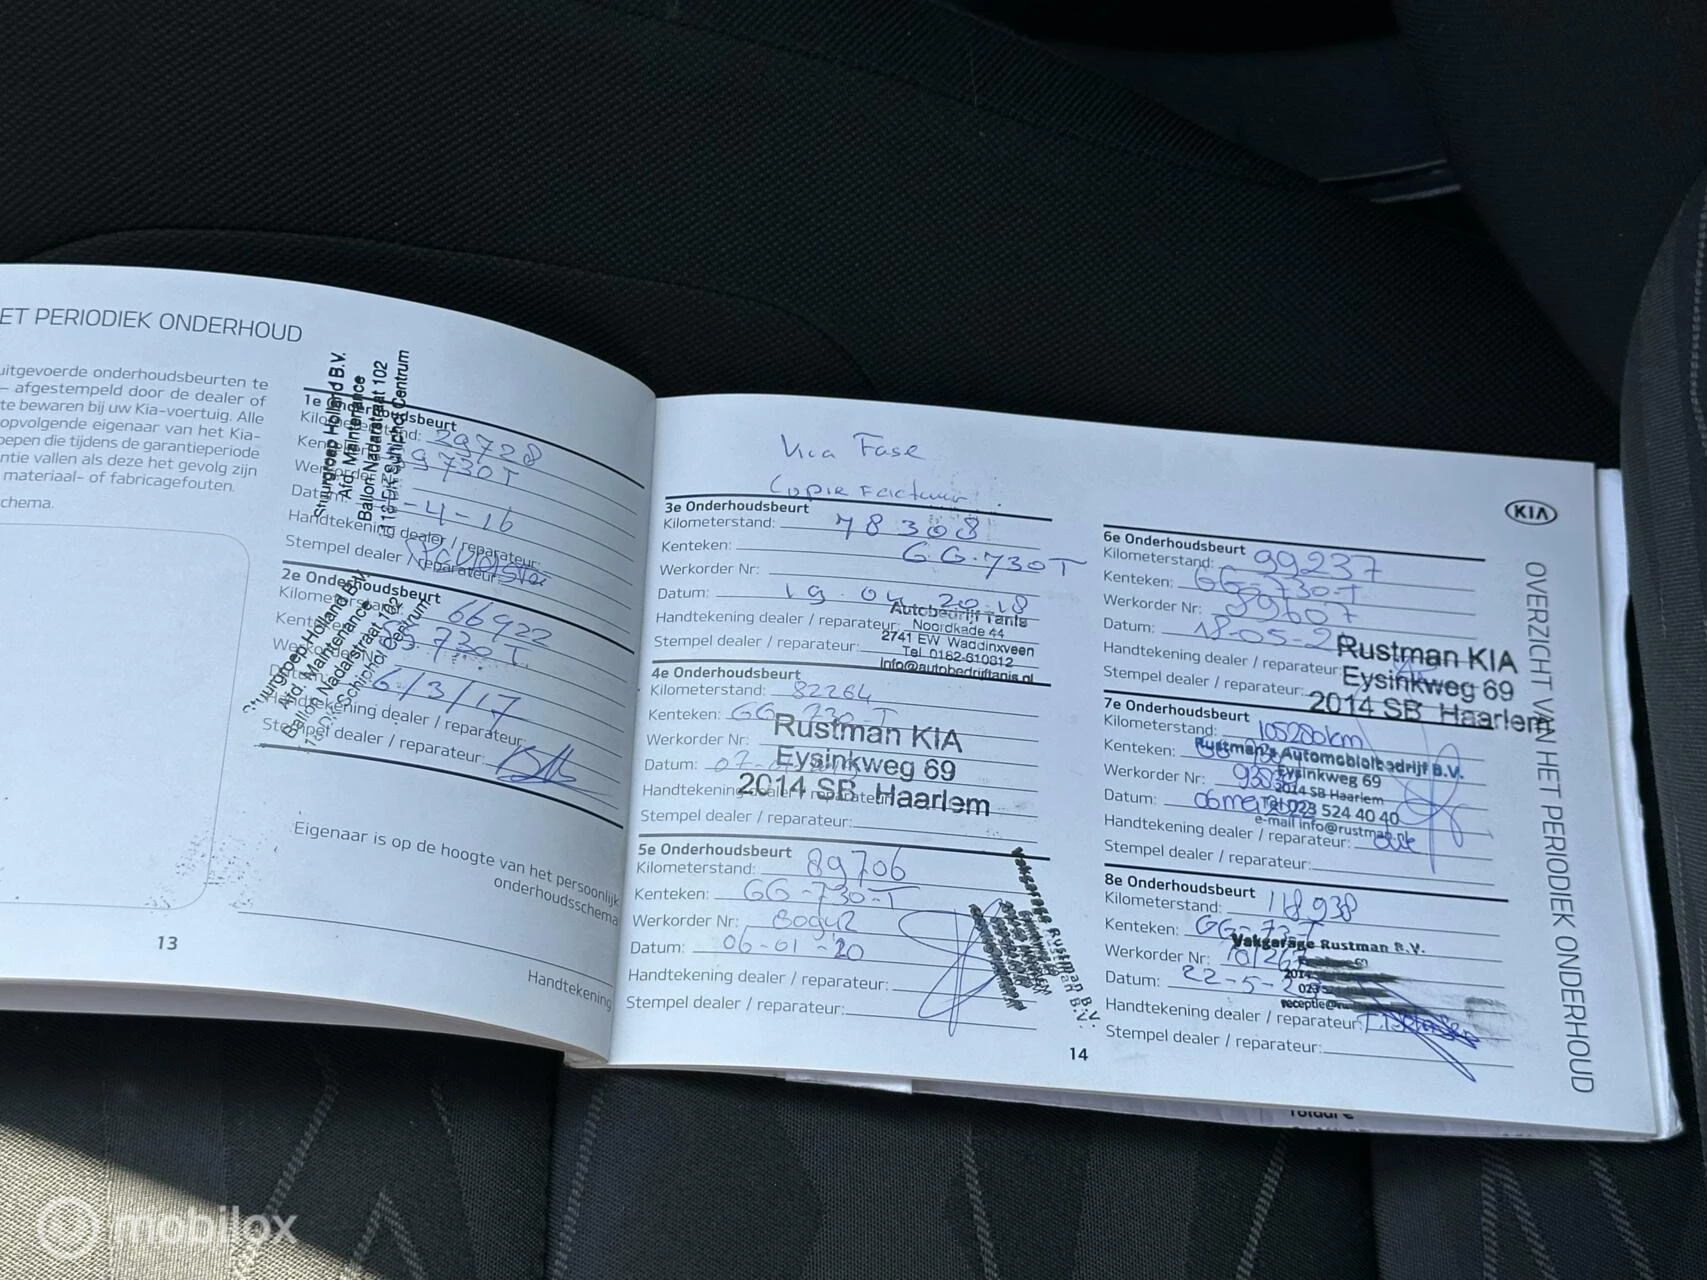 ET PERIODIEK ONDERHOUD
uitgevoerde onderhoudsbeurten te
– afgestempeld door de dealer of
te bewaren bij uw Kia-voertuig. Alle
opvolgende eigenaar van het Kia-
oepen die tijdens de garantieperiode
ntie vallen als deze het gevolg zijn
materiaal- of fabricagefouten.
chema.
13
1e Onderhoudsbeurt
29728
730T
-4-16
Handtekening dealer / reparateur:
Stempel dealer / reparateur:
Stuurgroep Holland B.V.
Afd. Maintenance
Ballon Nadarstraat 102
Schiphol Centrum
2e Onderhoudsbeurt
66922
730T
6/3/17
Handtekening dealer / reparateur:
Stempel dealer / reparateur:
Stuurgroep Holland B.V.
Afd. Maintenance
Ballon Nadarstraat 102
Schiphol Centrum
Eigenaar is op de hoogte van het persoonlijk
onderhoudsschema
Handtekening
Via Fase
Copie Factuur
3e Onderhoudsbeurt
Kilometerstand: 78308
Kenteken: GG-730T
Werkorder Nr:
Datum: 19.04.2018
Handtekening dealer / reparateur:
Stempel dealer / reparateur:
Autobedrijf Tanis
Noordkade 44
2741 EW Waddinxveen
Tel. 0182-610312
info@autobedrijftanis.nl
4e Onderhoudsbeurt
Kilometerstand: 82264
Kenteken: GG-730-T
Werkorder Nr:
Datum: 07-
Handtekening dealer / reparateur:
Stempel dealer / reparateur:
Rustman KIA
Eysinkweg 69
2014 SB Haarlem
5e Onderhoudsbeurt
Kilometerstand: 89706
Kenteken: GG-730-T
Werkorder Nr:
Datum: 06-01-'20
Handtekening dealer / reparateur:
Stempel dealer / reparateur:
Vakgarage Rustman B.V.
14
KIA
OVERZICHT VAN HET PERIODIEK ONDERHOUD
6e Onderhoudsbeurt
Kilometerstand: 99237
Kenteken: GG-730-T
Werkorder Nr: 89607
Datum: 18-05-2
Handtekening dealer / reparateur:
Stempel dealer / reparateur:
Rustman KIA
Eysinkweg 69
2014 SB Haarlem
7e Onderhoudsbeurt
Kilometerstand: 105280km
Kenteken:
Werkorder Nr:
Datum: 06 mei
Handtekening dealer / reparateur:
Stempel dealer / reparateur:
Rustman's Automobielbedrijf B.V.
Eysinkweg 69
2014 SB Haarlem
Tel 023 524 40 40
e-mail info@rustman.nl
8e Onderhoudsbeurt
Kilometerstand: 118938
Kenteken: GG-73-T
Werkorder Nr:
Datum: 22-5-2
Handtekening dealer / reparateur:
Stempel dealer / reparateur:
Vakgarage Rustman B.V.
mobilox